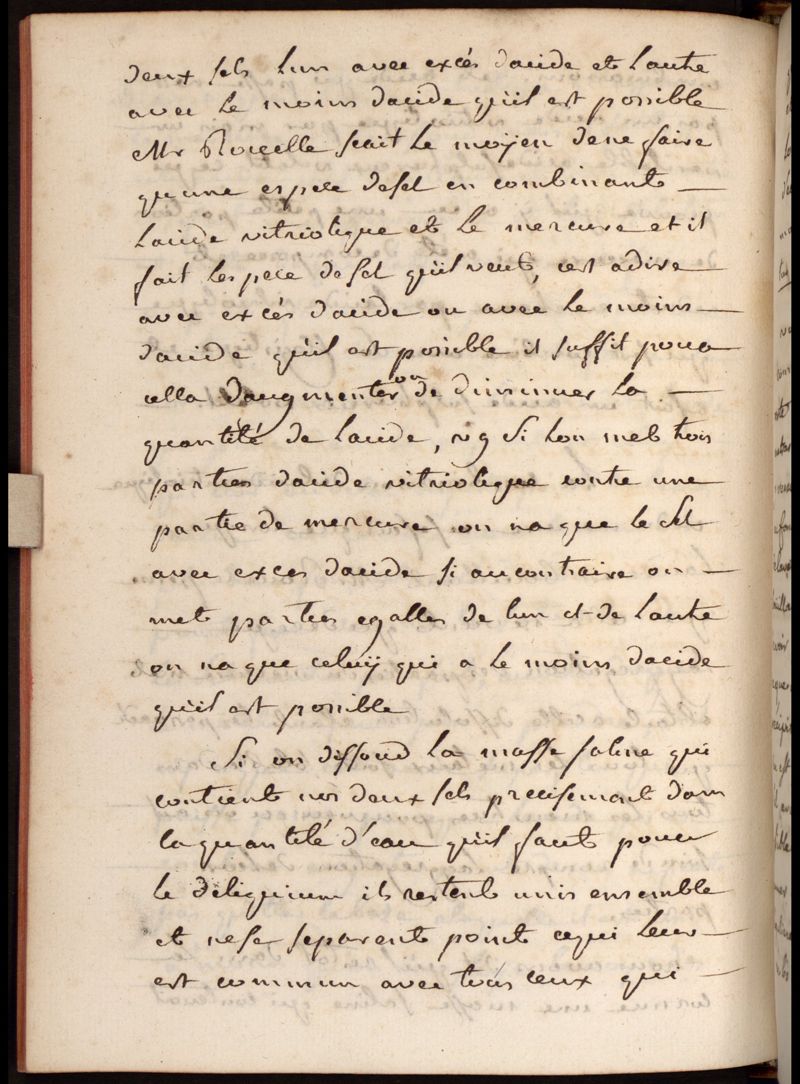 deux sels lun avec excés dacide et lautre
avec le moins dacide quil est possible
Mr Rouelle scait le moyen dene faire
quune espece desel en combinant
lacide vitriolique et le mercure et il
fait lespece desel quil veut, cest adire
avec excés dacide ou avec le moins
dacide quil est possible il suffit pour
cella daugmenter ou de diminuer la
quantité de lacide, vg si lon met trois
parties dacide vitriolique contre une
partie de mercure on na que le sel
avec exces dacide si aucontraire on
met parties egalles de lun et de lautre
on na que celuÿ qui a le moins dacide
quil est possible
Si on dissoud la masse saline qui
contient nos deux sels precisement dans
la quantité d'eau quil faut pour
le déliquium ils restent unis ensemble
et nese separent point cequi leur
est commun avec tous ceux qui